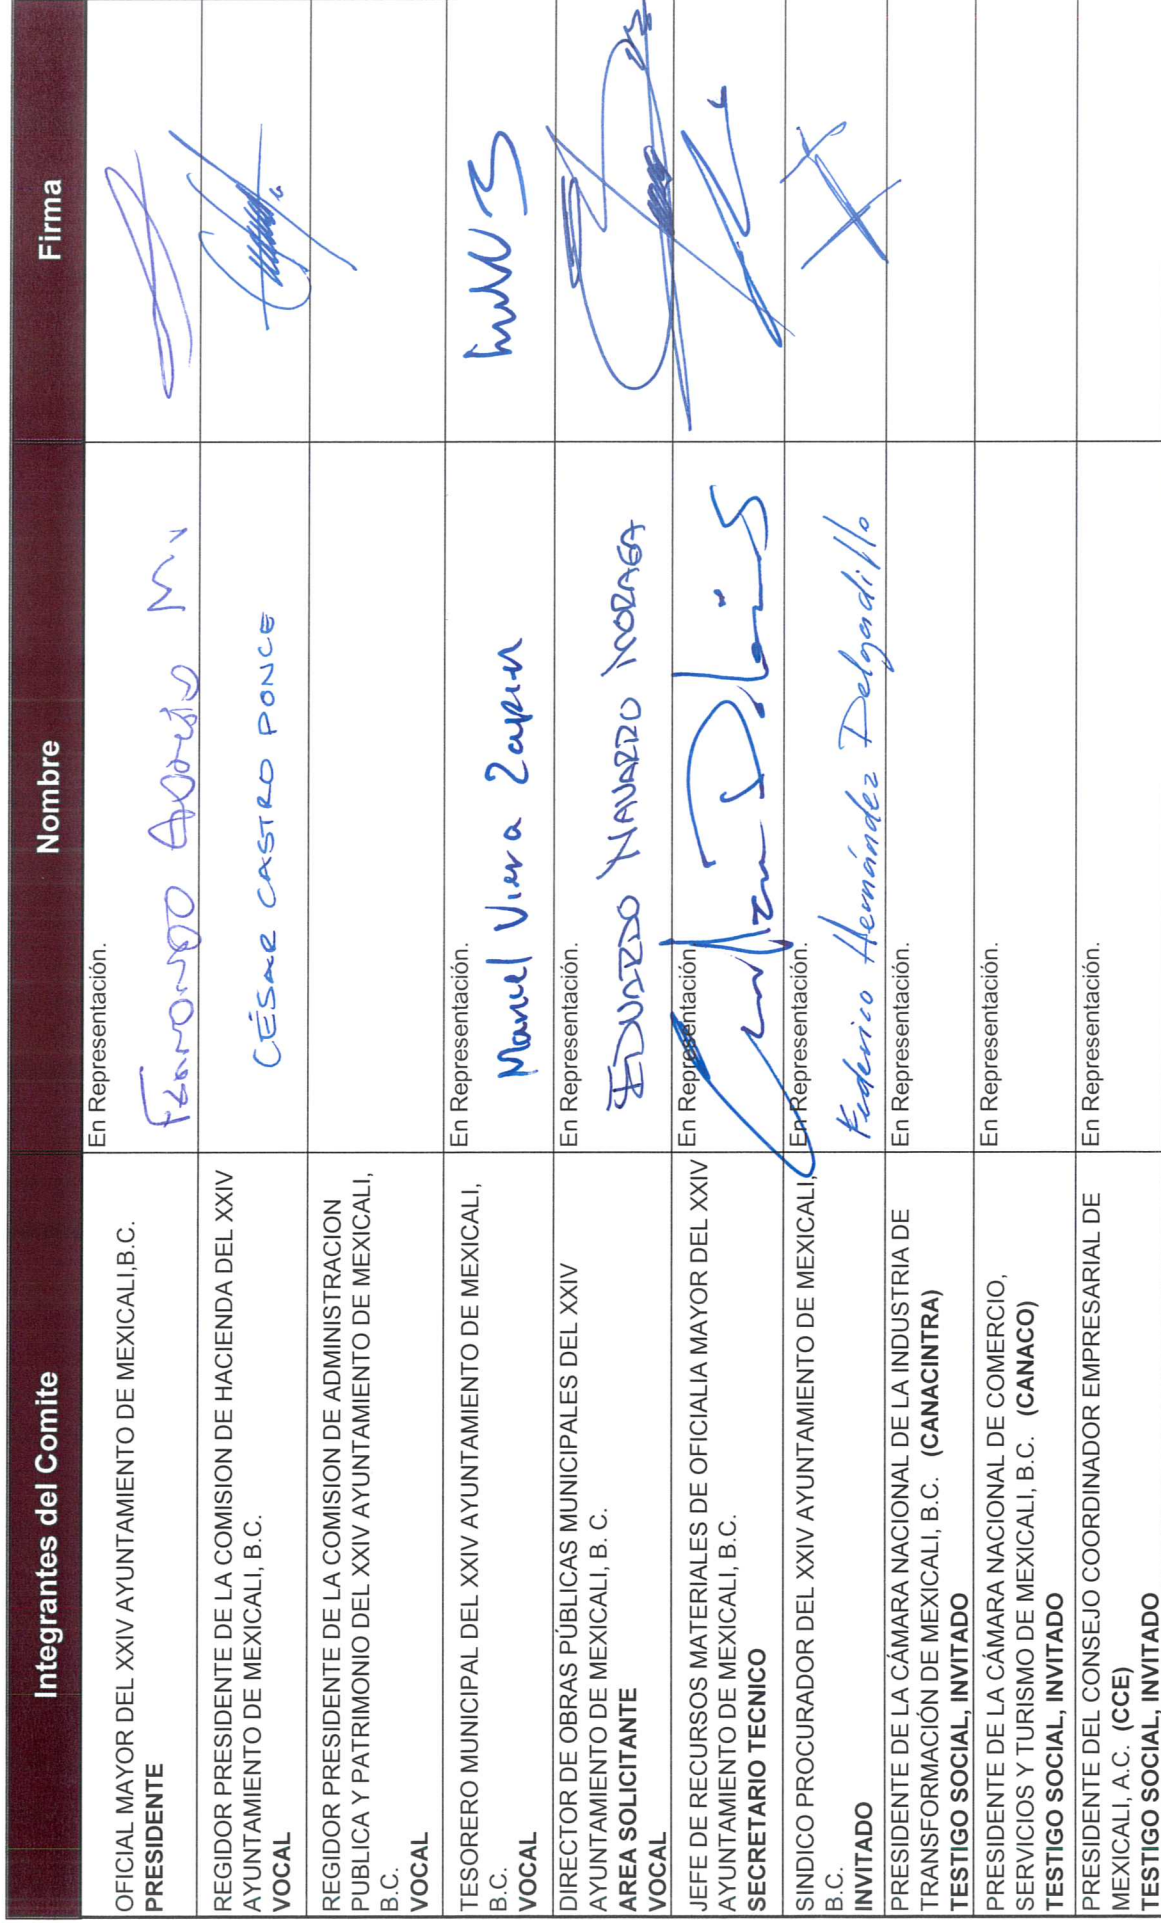 Integrantes del Comite
Nombre
Firma
OFICIAL MAYOR DEL XXIV AYUNTAMIENTO DE MEXICALI,B.C.
PRESIDENTE
En Representación.
REGIDOR PRESIDENTE DE LA COMISION DE HACIENDA DEL XXIV
AYUNTAMIENTO DE MEXICALI, B.C.
VOCAL
CÉSAR CASTRO PONCE
REGIDOR PRESIDENTE DE LA COMISION DE ADMINISTRACION
PUBLICA Y PATRIMONIO DEL XXIV AYUNTAMIENTO DE MEXICALI,
B.C.
VOCAL
TESORERO MUNICIPAL DEL XXIV AYUNTAMIENTO DE MEXICALI,
B.C.
VOCAL
En Representación.
Manuel Viera
DIRECTOR DE OBRAS PÚBLICAS MUNICIPALES DEL XXIV
AYUNTAMIENTO DE MEXICALI, B. C.
AREA SOLICITANTE
VOCAL
En Representación.
EDUARDO NAVARRO MORAGA
JEFE DE RECURSOS MATERIALES DE OFICIALIA MAYOR DEL XXIV
AYUNTAMIENTO DE MEXICALI, B.C.
SECRETARIO TECNICO
En Representación.
SINDICO PROCURADOR DEL XXIV AYUNTAMIENTO DE MEXICALI,
B.C.
INVITADO
En Representación.
Federico Hernández Delgadillo
PRESIDENTE DE LA CÁMARA NACIONAL DE LA INDUSTRIA DE
TRANSFORMACIÓN DE MEXICALI, B.C. (CANACINTRA)
TESTIGO SOCIAL, INVITADO
En Representación.
PRESIDENTE DE LA CÁMARA NACIONAL DE COMERCIO,
SERVICIOS Y TURISMO DE MEXICALI, B.C. (CANACO)
TESTIGO SOCIAL, INVITADO
En Representación.
PRESIDENTE DEL CONSEJO COORDINADOR EMPRESARIAL DE
MEXICALI, A.C. (CCE)
TESTIGO SOCIAL, INVITADO
En Representación.